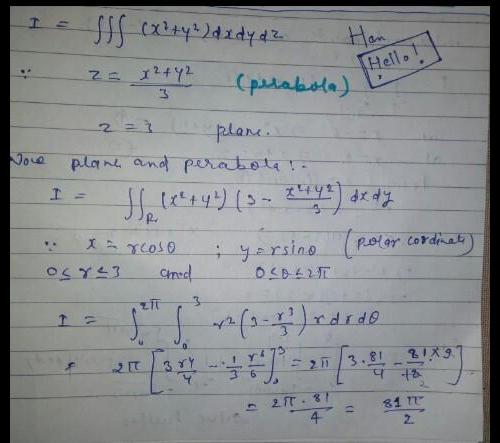 I = ∭ (x²+y²) dx dy dz
Hello!
∵ z = (x²+y²)/3 (perabola)
z = 3 plane.
Now plane and perabola:.
I = ∬_R (x²+y²) (3 - (x²+y²)/3) dx dy
∵ x = rcosθ ; y = rsinθ (polar cordinate)
0 ≤ r ≤ 3 and 0 ≤ θ ≤ 2π
I = ∫₀^2π ∫₀^3 r² (3 - r³/3) r dr dθ
= 2π [3 r⁴/4 - 1/3 r⁶/6]₀³ = 2π [3·81/4 - 81×9/18]
= 2π·81/4 = 81π/2